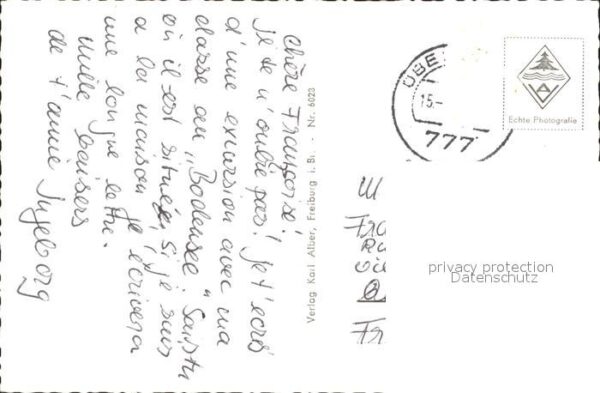 chère Françoise!
je te n'oublie pas! Je t'ecris
d'une excursion avec ma
classe au "Bodensee". Sais tu
où il est situé, si je suis
a la maison je ecrivera
une longue lettre.
Mille baisers
de t'amie Ingeborg
Verlag Karl Alber, Freiburg i. Br. - Nr. 6028
ÜBE
15.-
777
Echte Photografie
M
Fra
Ru
Fr
privacy protection
Datenschutz